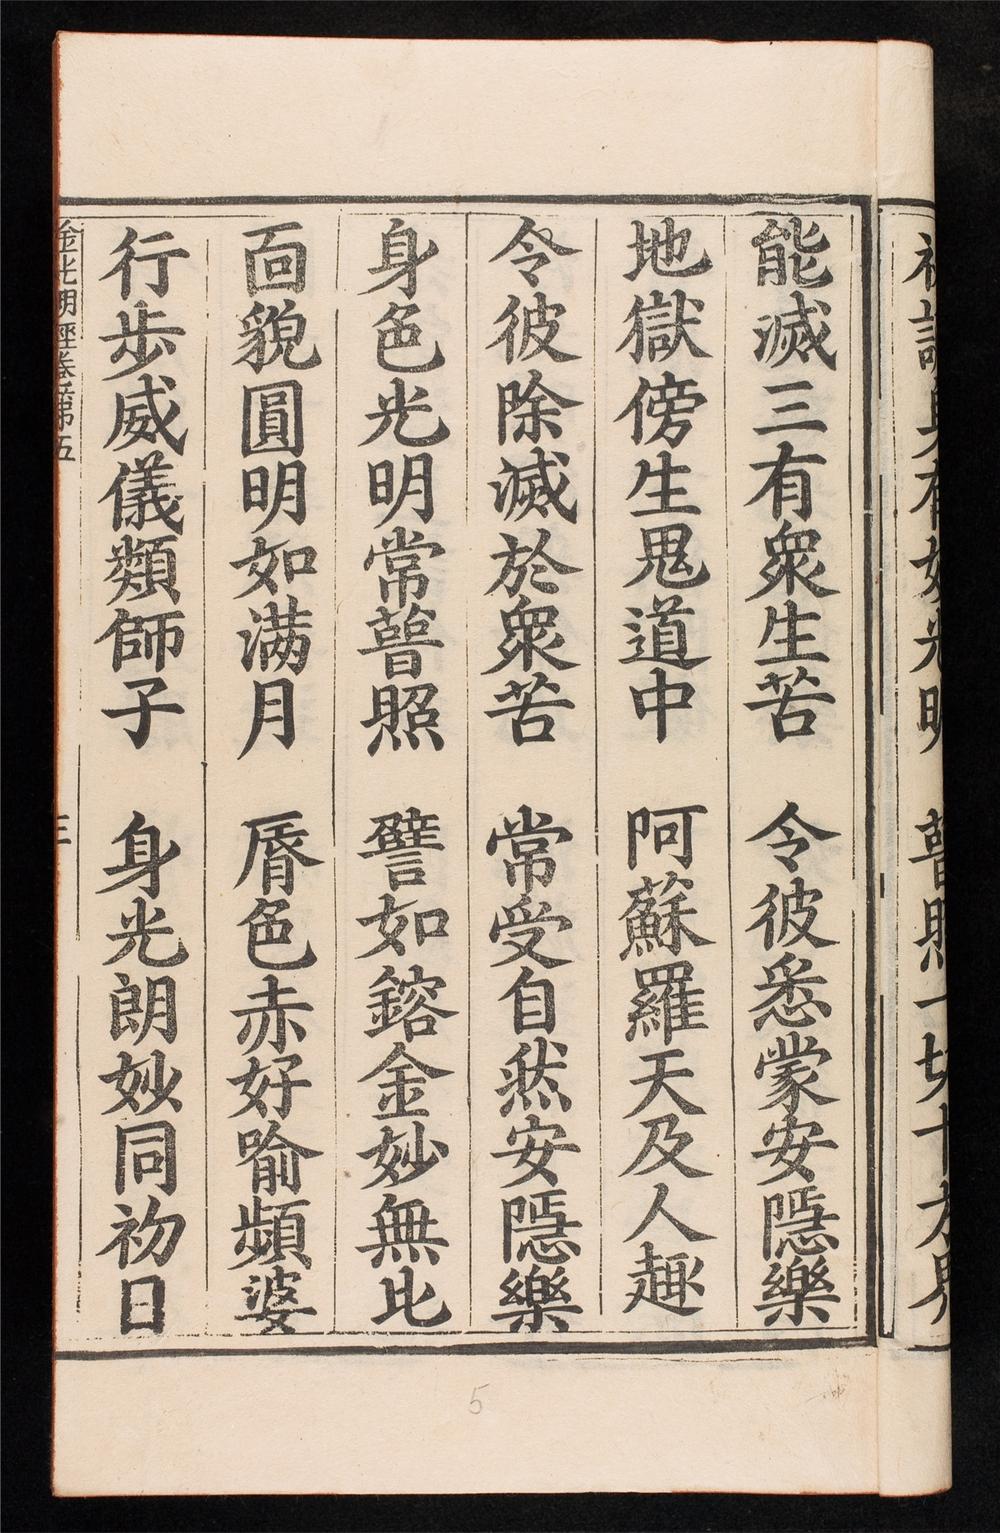 能滅三有衆生苦　令彼悉蒙安隱樂
地獄傍生鬼道中　阿蘇羅天及人趣
令彼除滅於衆苦　常受自然安隱樂
身色光明常普照　譬如鎔金妙無比
面貌圓明如滿月　脣色赤好喻頻婆
行步威儀類師子　身光朗妙同初日
金光明經卷第五
三
5